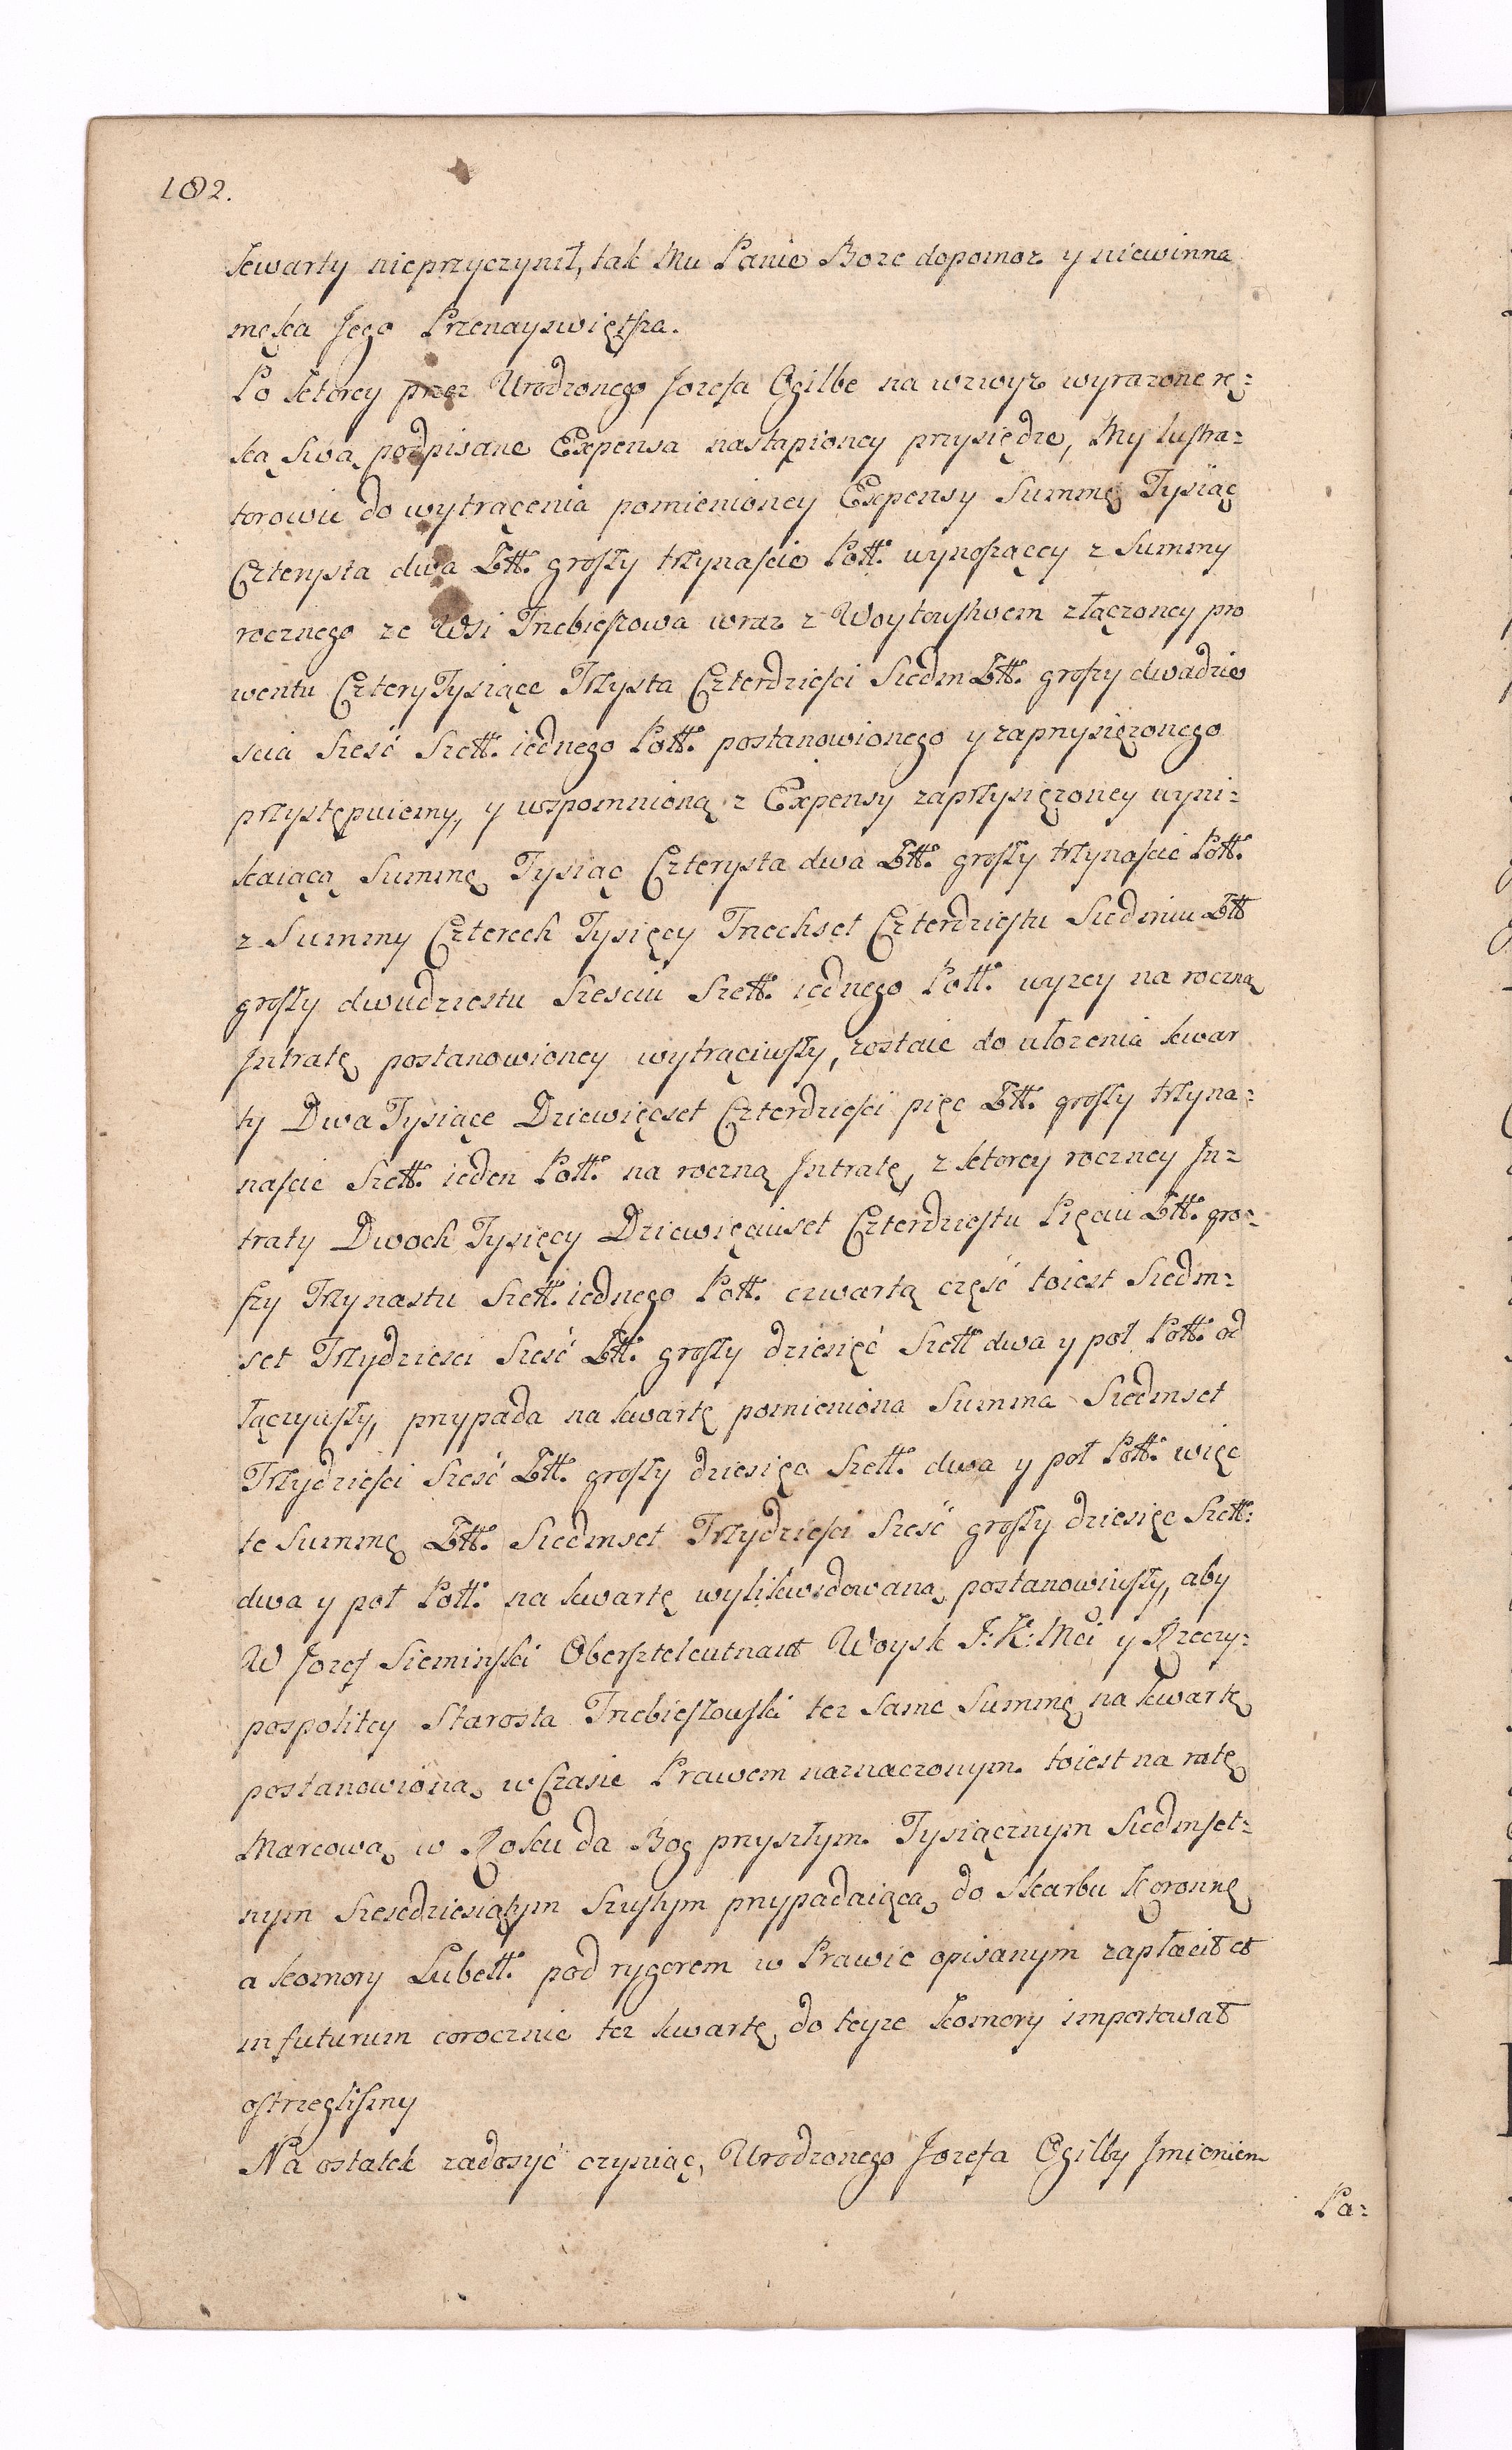 182.
kwarty nieprzyczynił, tak Mu Panie Boze dopomoz y niewinna
męka Jego Przenayswiętsza.
Po ktorey przez Urodzonego Jozefa Ogilbe na wzwyz wyrazone rę=
ką swą podpisane Expensa nastąpioney przysiędze, My lustra=
torowie do wytrącenia pomienioney Expensy Summę Tysiąc
Czterysta dwa Złł. groszy trzynascie Poll. wynoszącey z Summy
rocznego ze Wsi Trzebieszowa wraz z Woytowstwem złączoney pro
wentu Cztery Tysiące Trzysta Czterdziesci Siedm Złł. groszy dwadzie
scia Szesć Szell. iednego Poll. postanowionego y zaprzysięzonego
przystępuiemy, y wspomnioną z Expensy zaprzysięzoney wyni=
kaiącą Summę Tysiąc Czterysta dwa Złł. groszy trzynascie Poll.
z Summy Czterech Tysięcy Trzechset Czterdziestu Siedmiu Złł
groszy dwudziestu Szesciu Szell. iednego Poll. wyzey na roczną
Intratę postanowioney wytrąciwszy, zostaie do ułozenia kwar
ty Dwa Tysiące Dziewięcset Czterdziesci pięc Złł. groszy trzyna=
nascie Szell. ieden Poll. na roczną Intratę, z ktorey roczney In=
traty Dwoch Tysięcy Dziewięciuset Czterdziestu Pięciu Złł. gro=
szy Trzynastu Szell. iednego Poll. czwartą częsć toiest Siedm=
set Trzydziesci Szesć Złł. groszy dziesięć Szell dwa y poł Poll. od
łączywszy, przypada na kwartę pomieniona Summa Siedmset
Trzydziesci Szesć Złł. groszy dziesięc Szell. dwa y poł Poll. więc
te Summę Złł. Siedmset Trzydziesci Szesć groszy dziesięc Szell.
dwa y poł Poll. na kwartę wylikwidowaną postanowiwszy, aby
W Jozef Sieminski Oberszteleutnant Woysk J: K: Mci y Rzeczy=
pospolitey Starosta Trzebieszowski tez same Summę na kwartę
postanowioną w Czasie Prawem naznaczonym toiest na ratę
Marcową w Roku da Bog przyszłym Tysiącznym Siedmset=
nym Szescdziesiątym Szustym przypadaiącą do Skarbu Koronnę
a komory Lubell. pod rygorem w Prawie opisanym zapłacił et
in futurum corocznie tez kwartę do teyze komory importował
ostrzeglismy
Na ostatek zadosyć czyniąc, Urodzonego Jozefa Ogilby Imieniem
Pa=